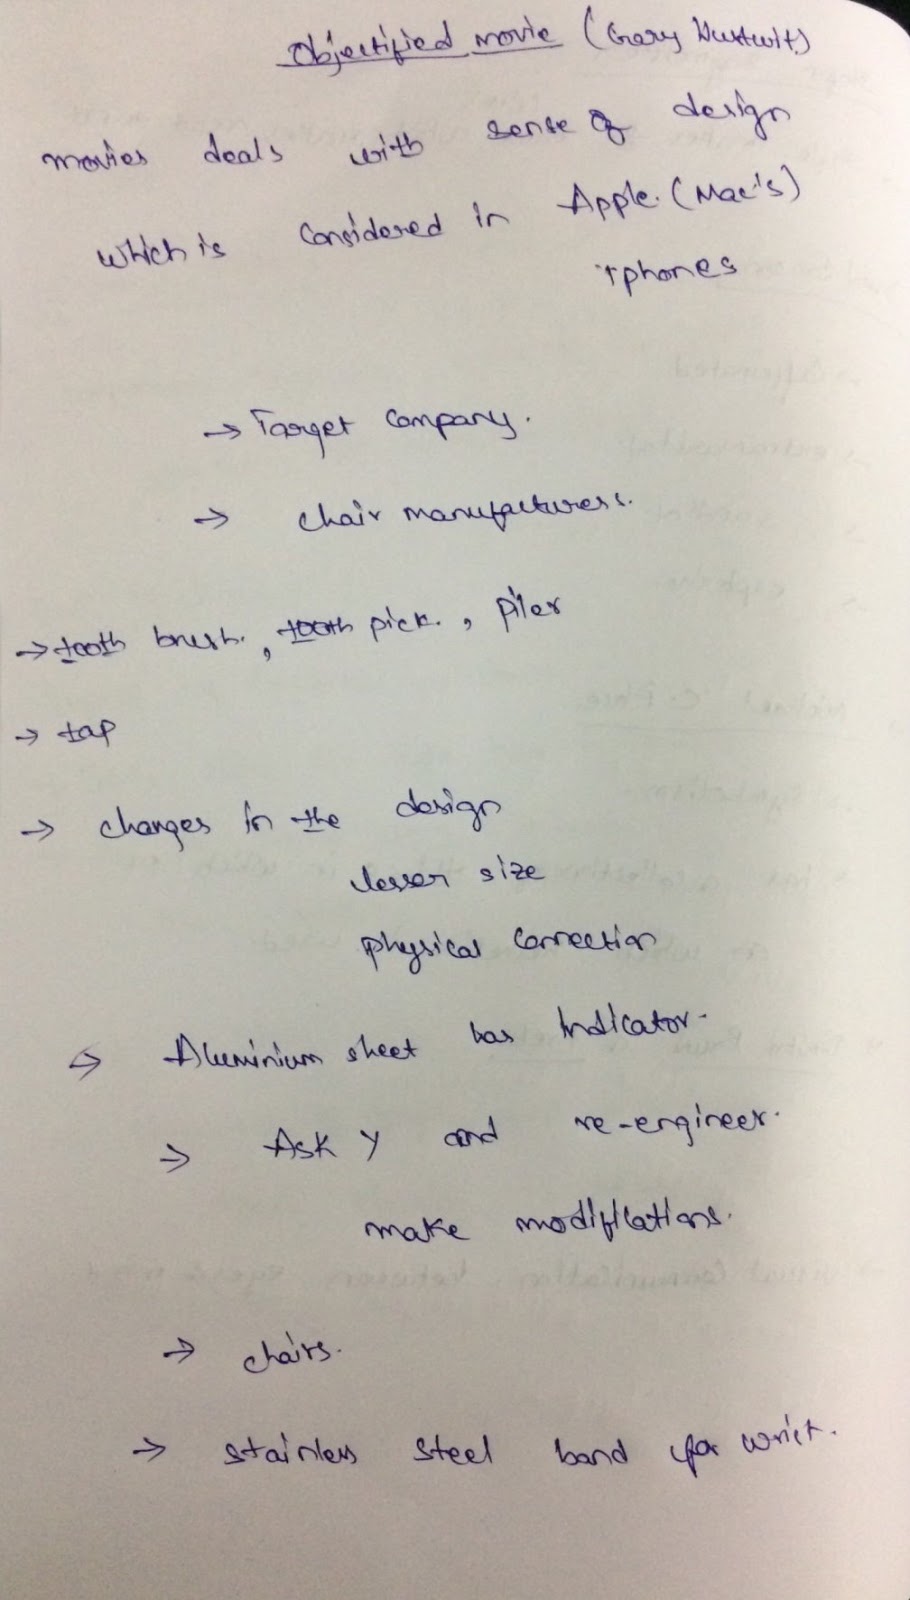 Objectified movie (Gary Hustwit)
movies deals with sense of design
which is considered in Apple. (Mac's)
iphones
→ Target company.
→ chair manufacturers.
→ tooth brush. , tooth pick. , piler
→ tap
→ changes in the design
lesser size
physical connection
→ Aluminium sheet has Indicator.
→ Ask y and re-engineer.
make modifications.
→ chairs.
→ stainless steel band for wrist.